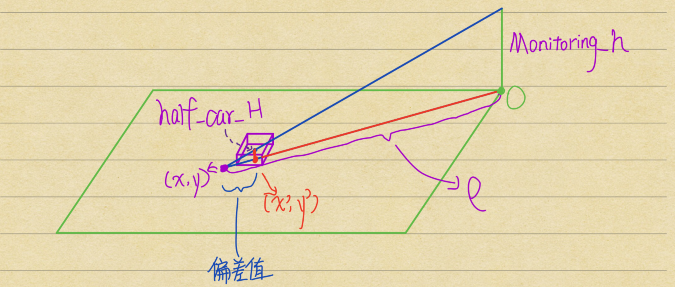 Monitoring_h
O
half_car_H
(x,y)
(x',y')
ρ
偏差值